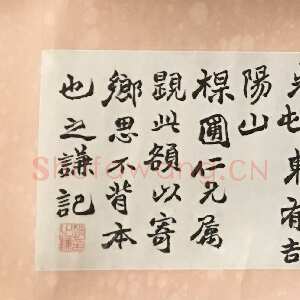 屯東有吉
陽山
橾圃仁兄属
題此額以寄
鄉思不背本
也之謙記
Shufawang.CN